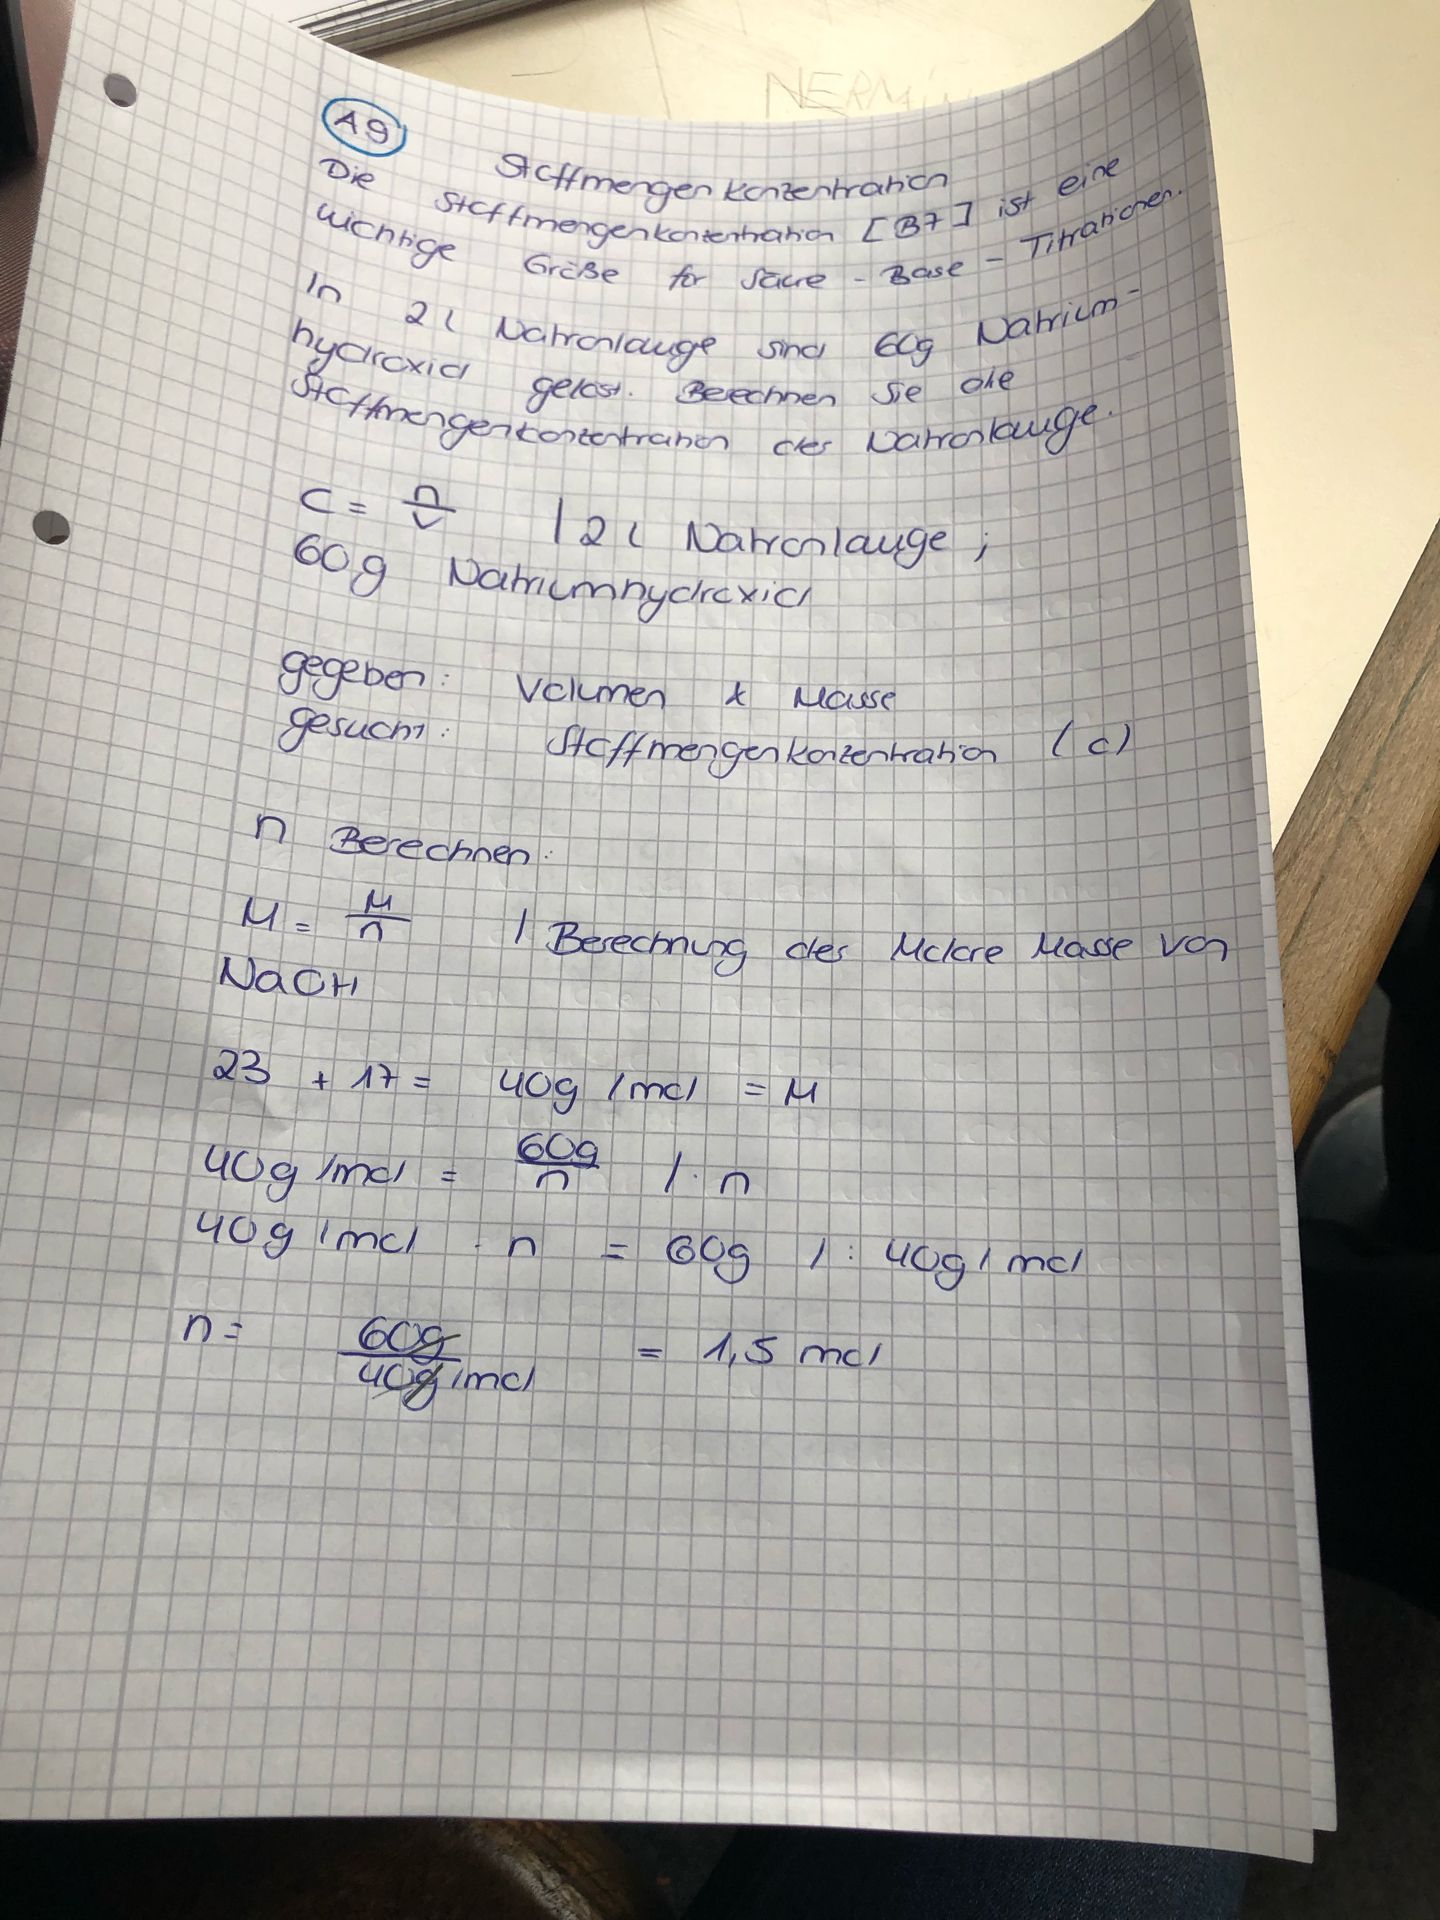 NERMIN
A9
Stoffmengenkonzentration
Die Stoffmengenkonzentration [B7] ist eine
wichtige Größe für Säure-Base-Titrationen.
In 2l Natronlauge sind 60g Natrium-
hydroxid gelöst. Berechnen Sie die
Stoffmengenkonzentration der Natronlauge.
c = n/v | 2l Natronlauge;
60g Natriumhydroxid
gegeben: Volumen & Masse
gesucht: Stoffmengenkonzentration (c)
n Berechnen:
M = M/n | Berechnung der Molare Masse von
NaOH
23 + 17 = 40g/mol = M
40g/mol = 60g/n | · n
40g/mol · n = 60g | : 40g/mol
n = 60g/40g/mol = 1,5 mol